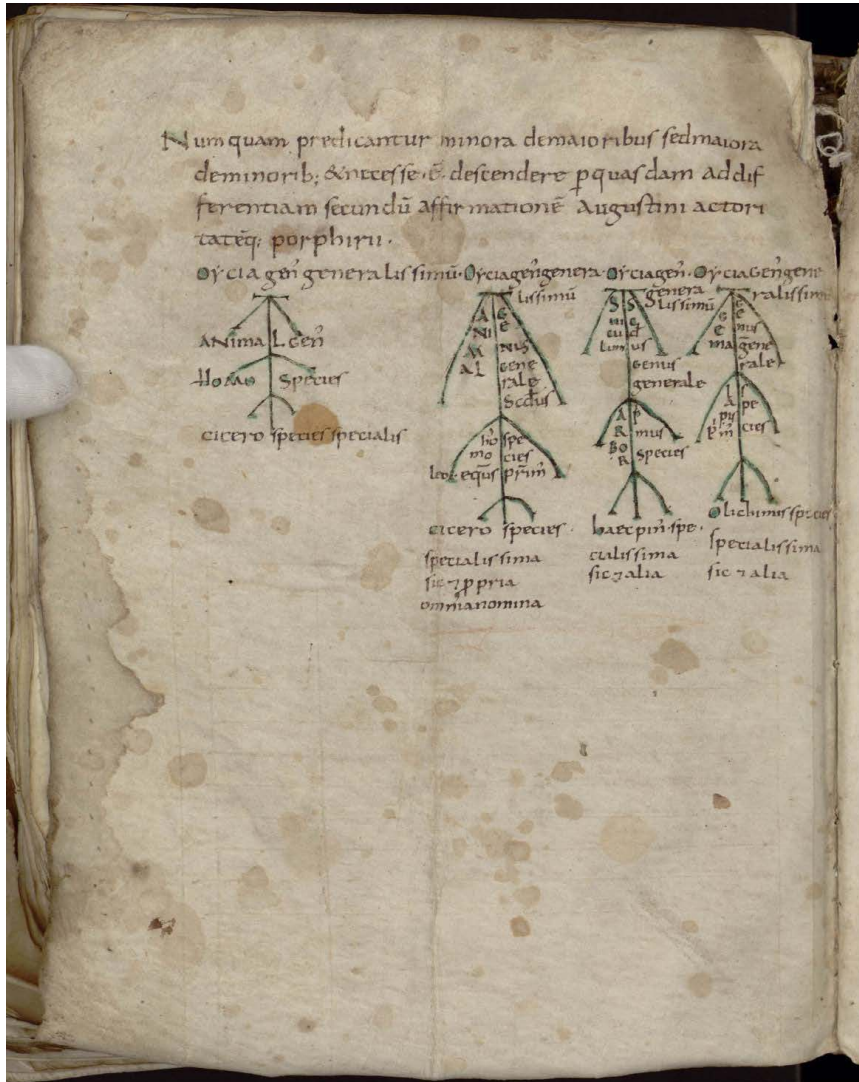 Numquam predicantur minora demaioribus sedmaiora
deminorib; &necesse·ē· descendere ꝑquasdam addif
ferentiam secundū affirmationē augustini actori
tateq; porphirii·
Oycia geñ generalissimū·
ANimaL geñ
HOMO Species
cicero species specialis
Oyciageñgenera
lissimū
ANIMAL
GENUS
Gene
rale
Scdus
ho
mo
spe
cies
leo· equs prim̄
cicero species·
specialissima
sic ⁊ ꝓpria
omnianomina
Oyciageñ·
genera
lissimū
genus
generale
ARBOR
p
mus
Species
haec pin· spe·
cialissima
sic ⁊ alia
OyciaGeñgene
ralissim
Gema
Genus
gene
rale
Lapis
spe
cies
prim̄
Olichinus species
specialissima
sic ⁊ alia